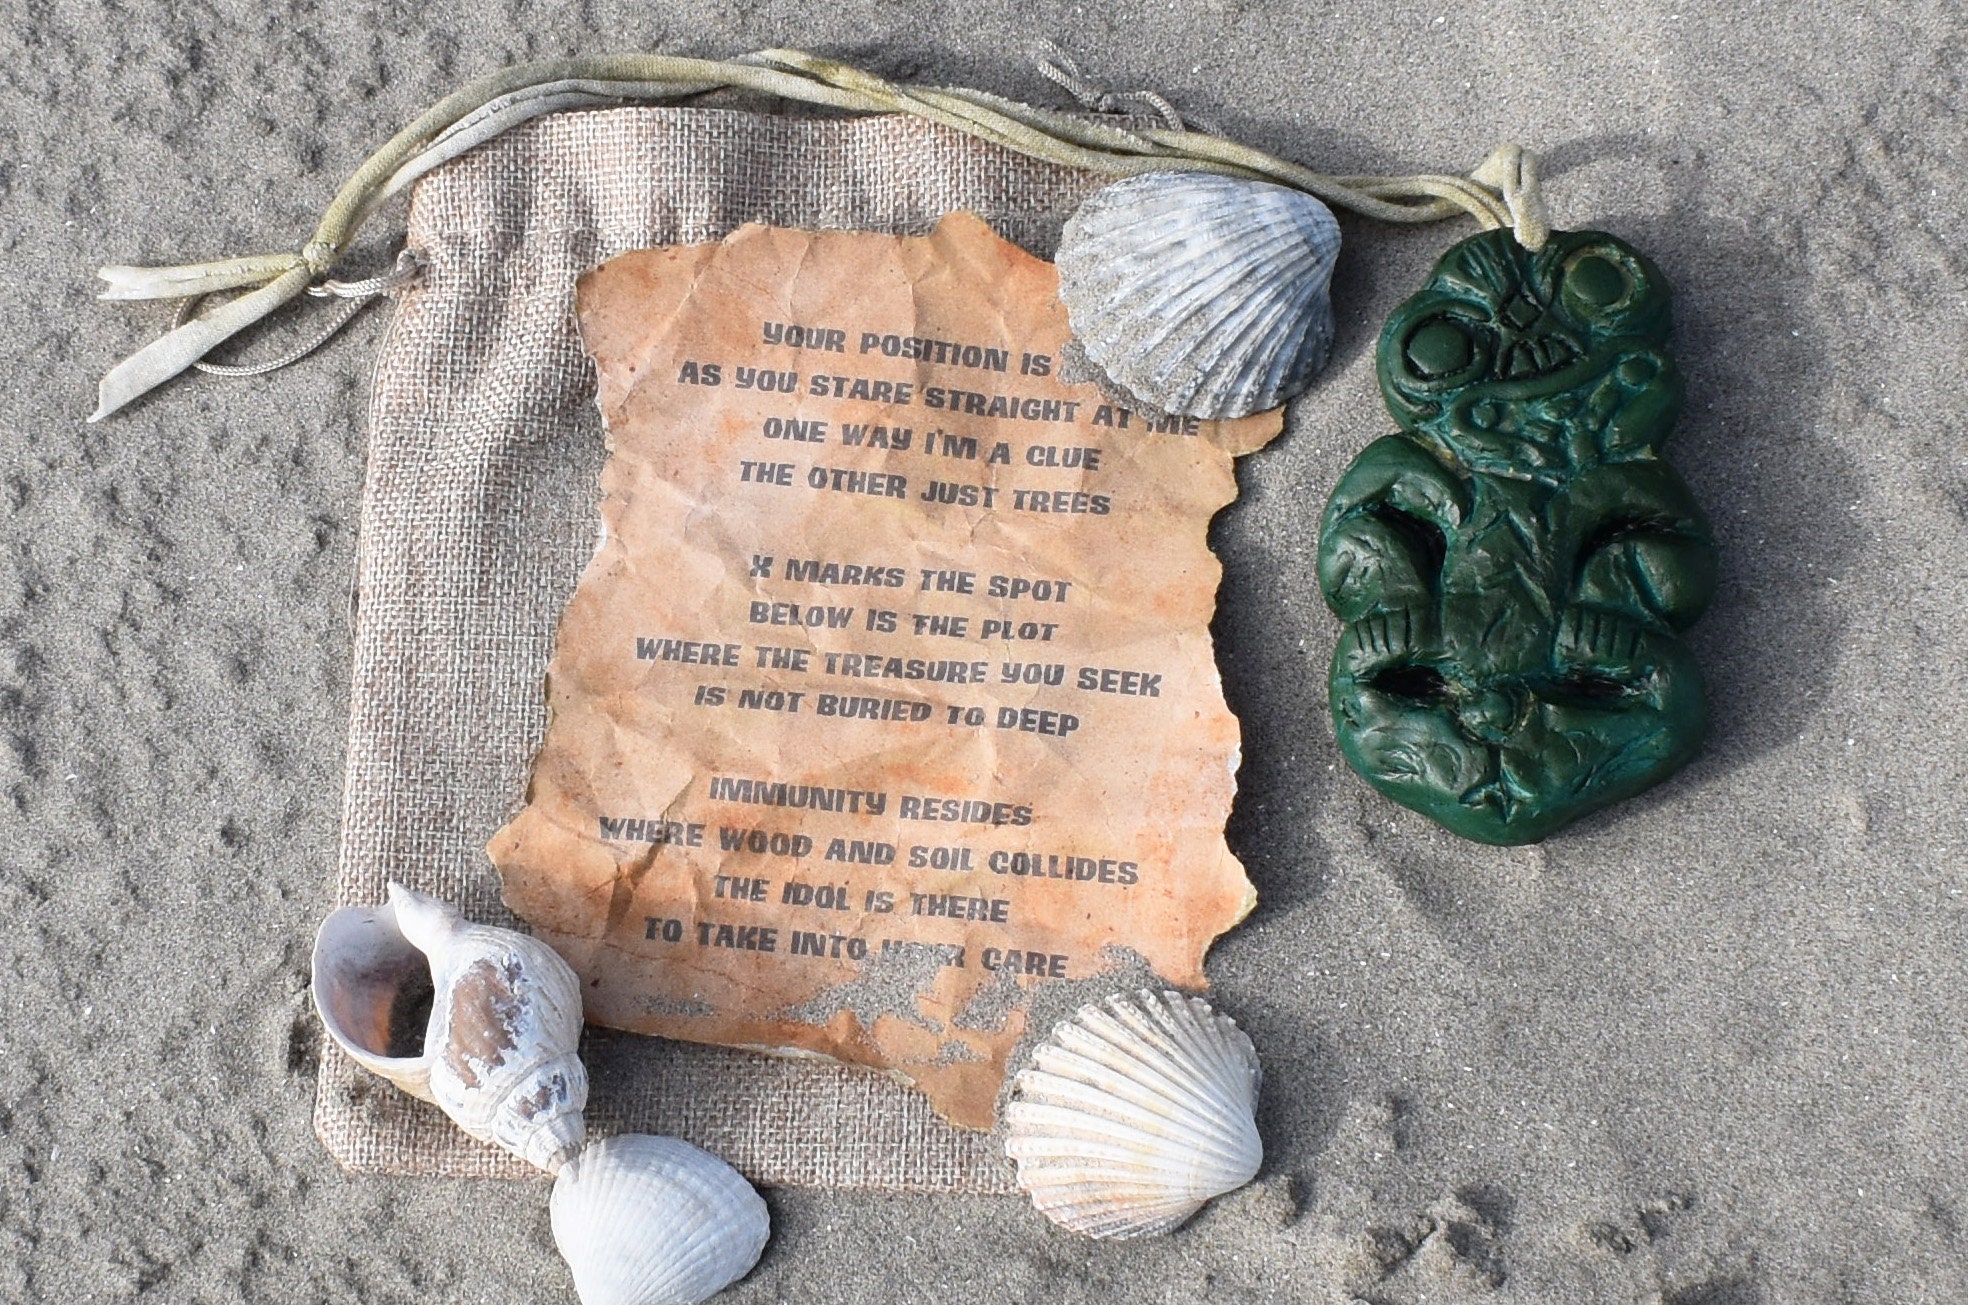 YOUR POSITION IS
AS YOU STARE STRAIGHT AT ME
ONE WAY I'M A CLUE
THE OTHER JUST TREES
X MARKS THE SPOT
BELOW IS THE PLOT
WHERE THE TREASURE YOU SEEK
IS NOT BURIED TO DEEP
IMMUNITY RESIDES
WHERE WOOD AND SOIL COLLIDES
THE IDOL IS THERE
TO TAKE INTO YOUR CARE